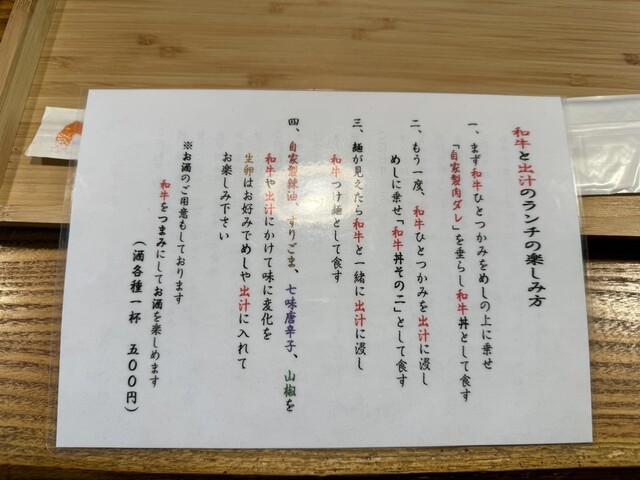 和牛と出汁のランチの楽しみ方
一、まず和牛ひとつかみをめしの上に乗せ
「自家製肉ダレ」を垂らし和牛丼として食す
二、もう一度、和牛ひとつかみを出汁に浸し
めしに乗せ「和牛丼その二」として食す
三、麺が見えたら和牛と一緒に出汁に浸し
和牛つけ麺として食す
四、自家製辣油、すりごま、七味唐辛子、山椒を
和牛や出汁にかけて味に変化を
生卵はお好みでめしや出汁に入れて
お楽しみ下さい
※お酒のご用意もしております
和牛をつまみにしてお酒を楽しめます
（酒各種一杯　五〇〇円）